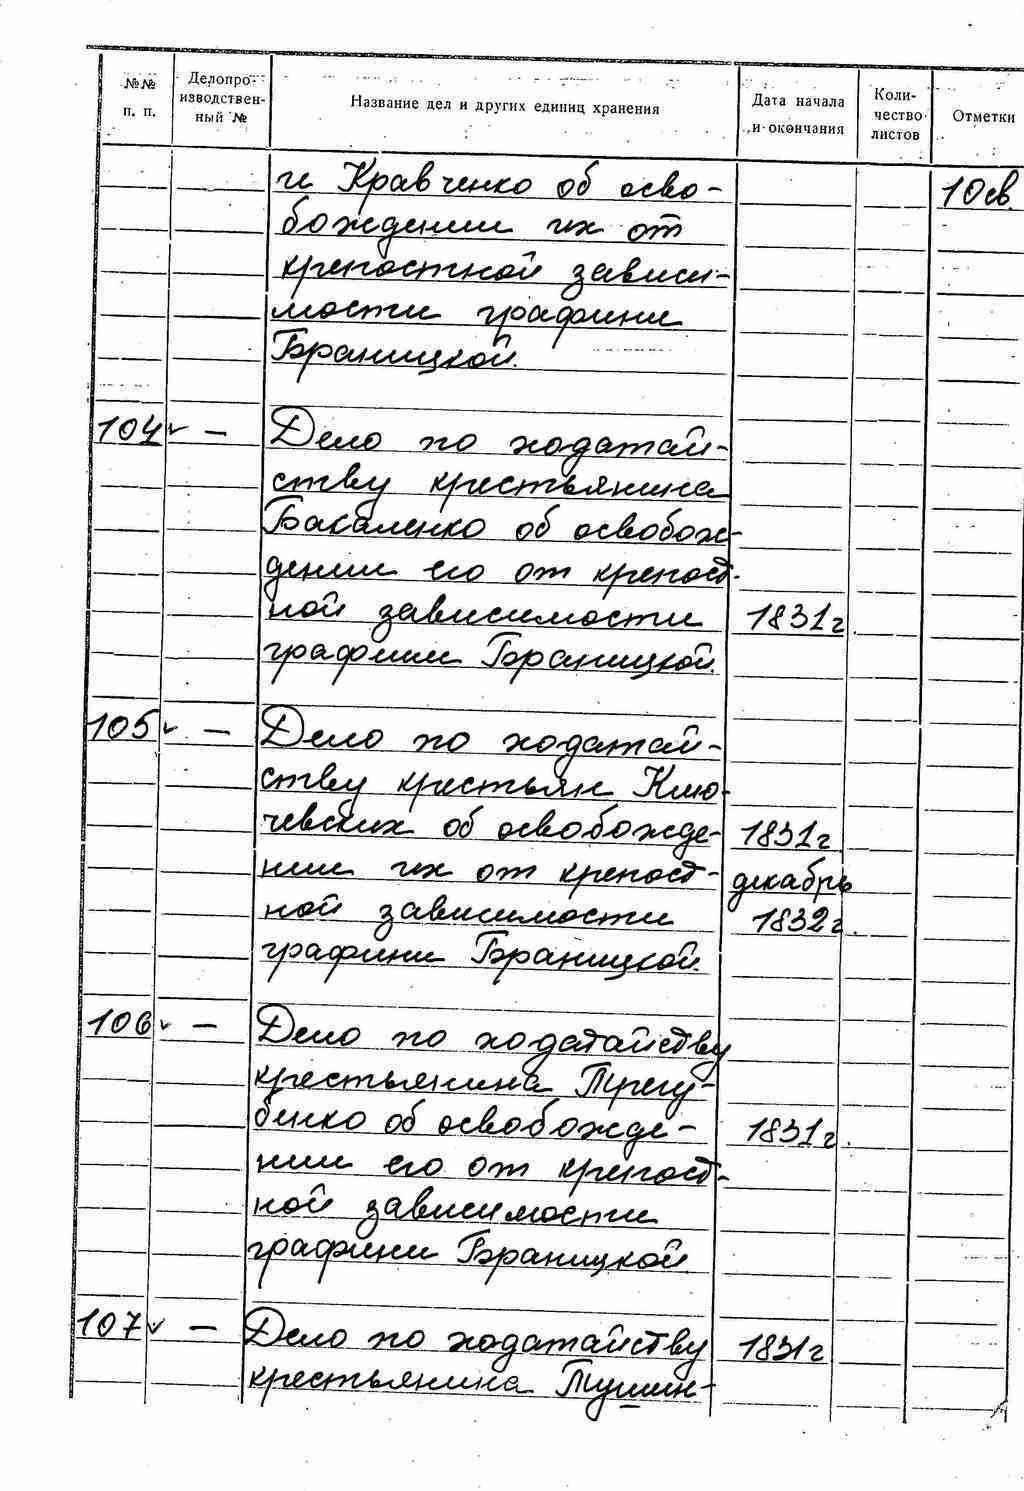 №№ п. п. Делопро- изводствен- ный № Название дел и других единиц хранения Дата начала и окончания Коли- чество листов Отметки
и Кравченко об осво- 10св.
бождении их от
крепостной зависи-
мости графини
Браницкой.
104 ✓ — Дело по ходатай-
ству крестьянина
Бакаленко об освобож-
дении его от крепост-
ной зависимости 1831г.
графини Браницкой.
105 ✓ — Дело по ходатай-
ству крестьян Клю-
чевских об освобожде- 1831г
нии их от крепост- декабрь
ной зависимости 1832г.
графини Браницкой.
106 ✓ — Дело по ходатайству
крестьянина Трегу-
бенко об освобожде- 1831г.
нии его от крепост-
ной зависимости
графини Браницкой
107 ✓ — Дело по ходатайству 1831г
крестьянина Тушин-